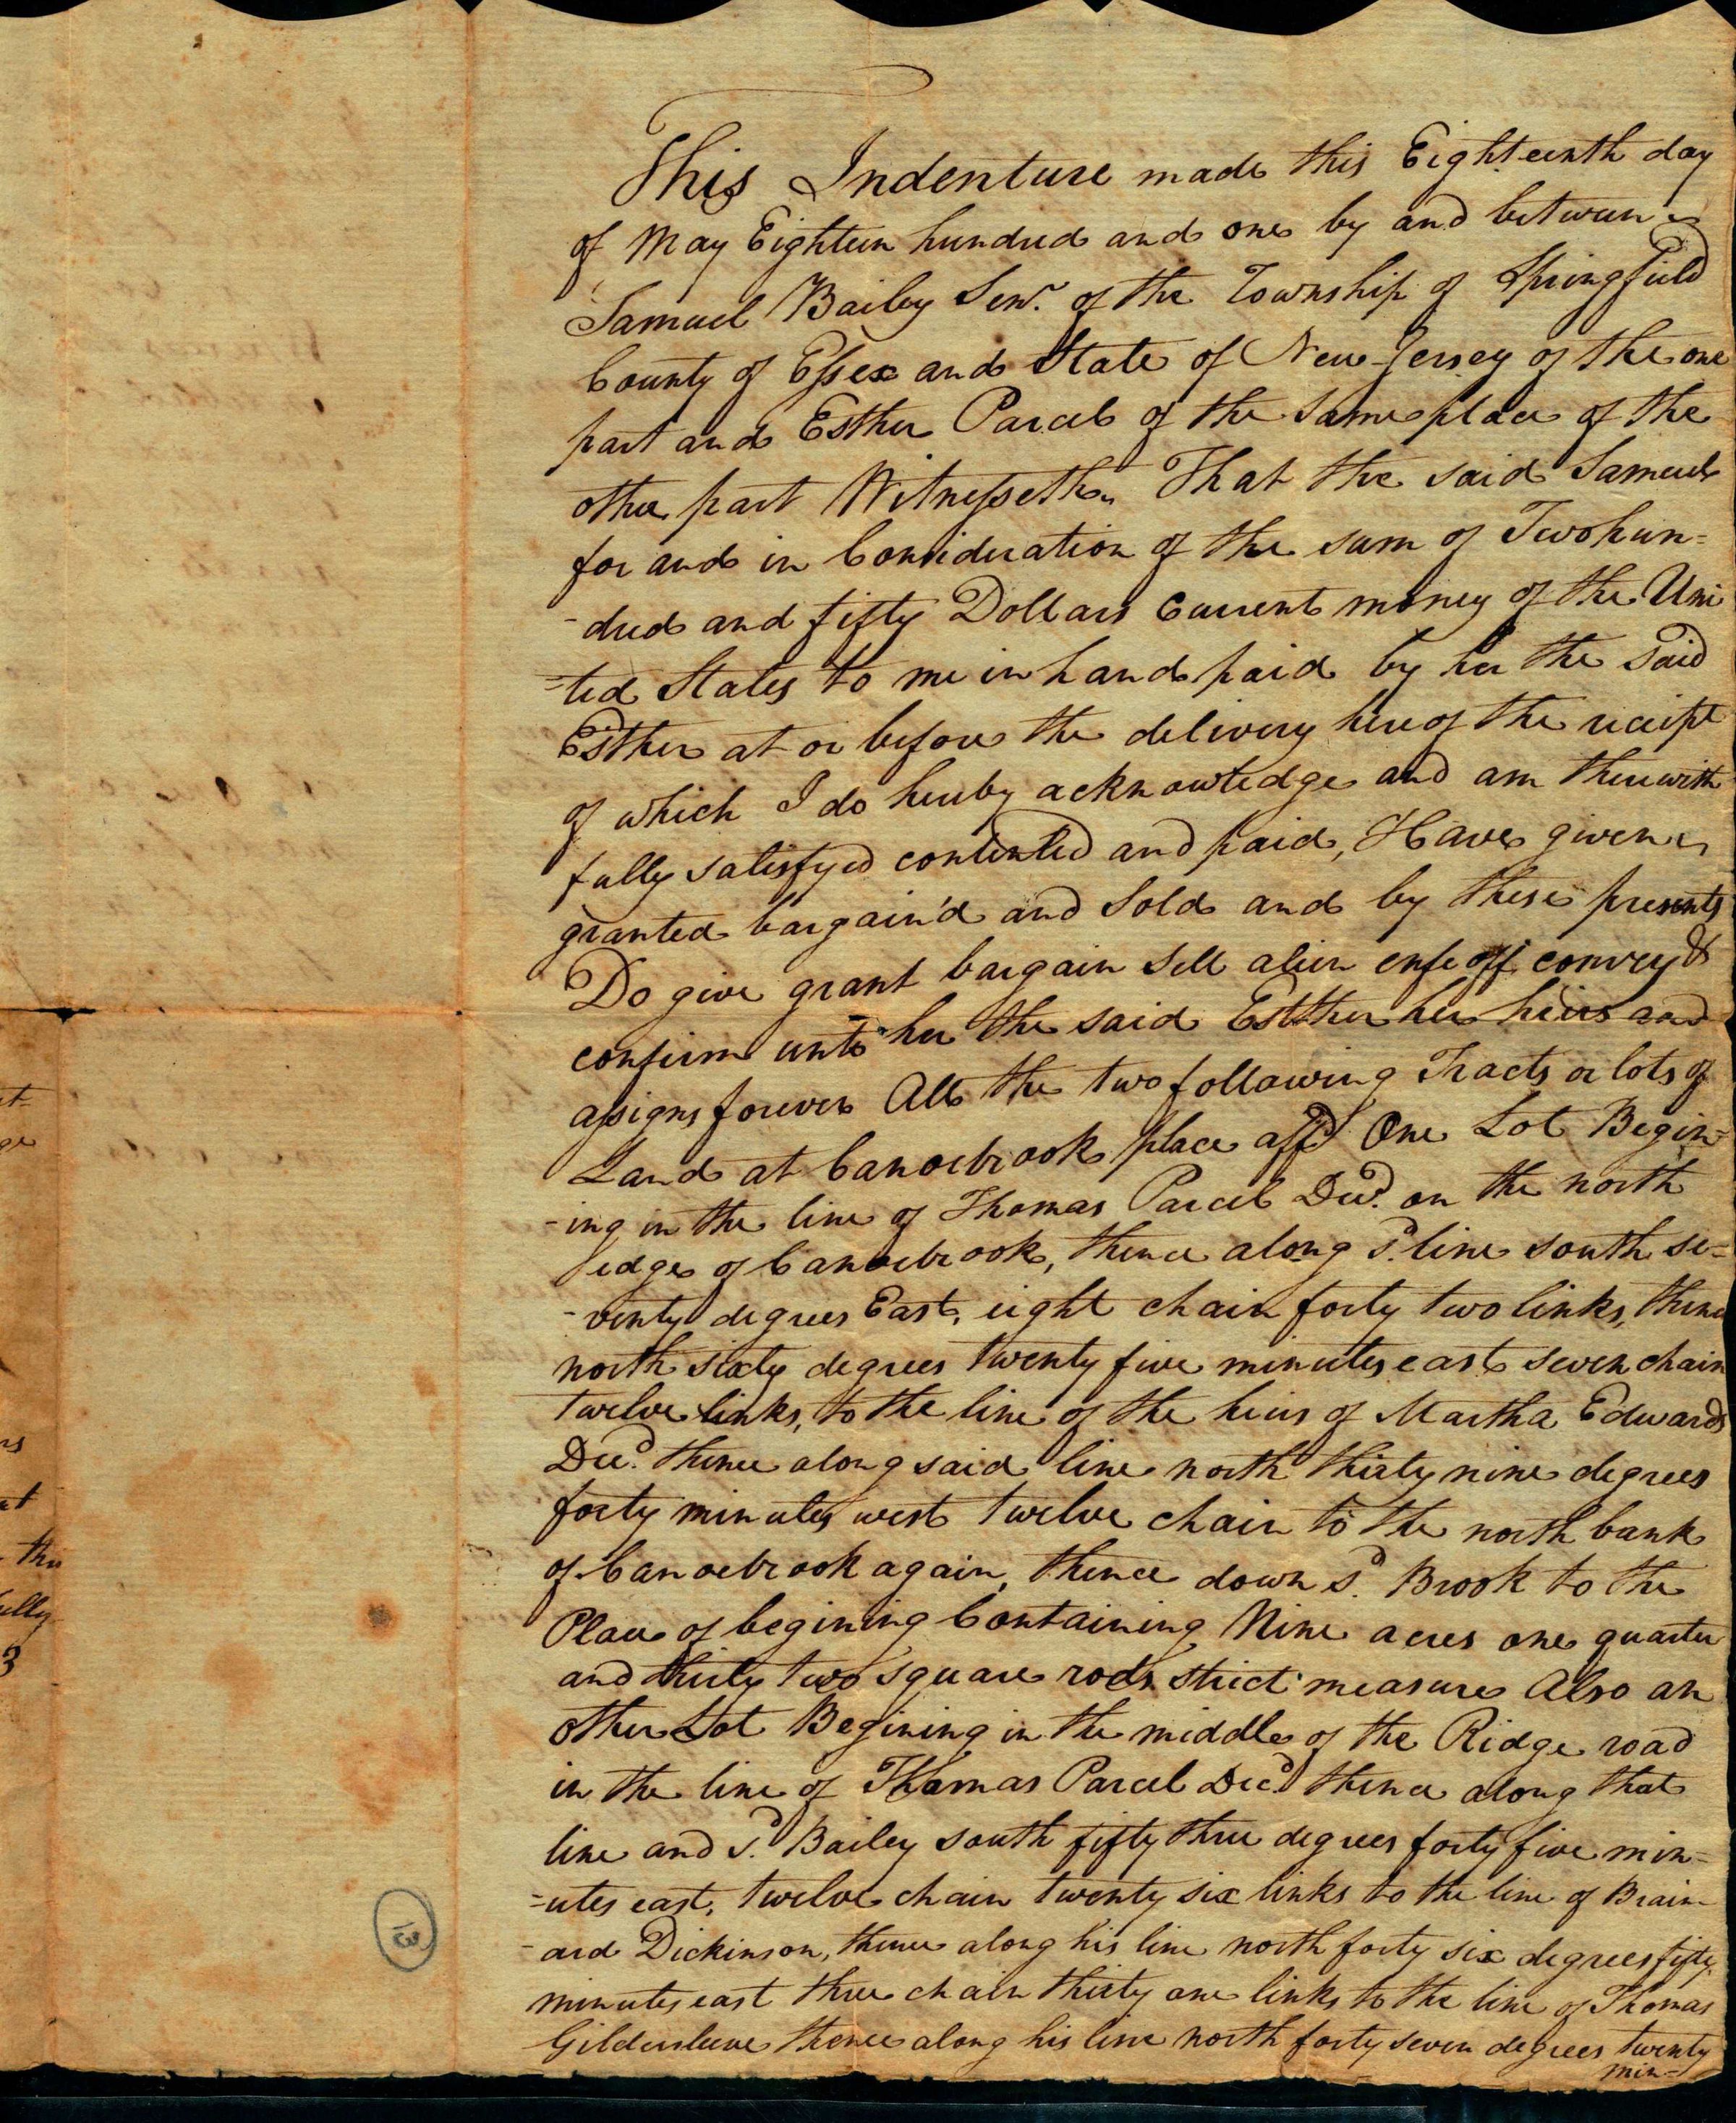 This Indenture made this Eighteenth day
of May Eighteen hundred and one by and between
Samuel Bailey Senr. of the Township of Springfield
County of Essex and State of New Jersey of the one
part and Esther Parcel of the same place of the
other part Witnesseth, That the said Samuel
for and in Consideration of the sum of Two hun=
-dred and fifty Dollars Current money of the Uni
=ted States to me in hand paid by her the said
Esther at or before the delivery hereof the receipt
of which I do hereby acknowledge and am therewith
fully satisfyed contented and paid, Have given
granted bargain'd and Sold and by these presents
Do give grant bargain Sell alien enfeoff convey &
confirm unto her the said Esther her heirs and
assigns forever All the two following Tracts or lots of
Land at Canoebrook place affd One Lot Begin=
-ing in the line of Thomas Parcel Decd. on the north
edge of Canoebrook, thence along sd. line south se=
-venty degrees East, eight chain forty two links, thence
north sixty degrees twenty five minutes east seven chain
twelve links, to the line of the heirs of Martha Edwards
Decd. thence along said line north thirty nine degrees
forty minutes west twelve chain to the north bank
of Canoebrook again, thence down sd. Brook to the
Place of begining Containing Nine acres one quarter
and thirty two square rods strict measure Also an
other Lot Begining in the middle of the Ridge road
in the line of Thomas Parcel Decd. thence along that
line and sd. Bailey south fifty three degrees forty five min=
=utes east, twelve chain twenty six links to the line of Brain-
-ard Dickinson, thence along his line north forty six degrees fifty
minutes east three chain thirty one links to the line of Thomas
Gildersleeve thence along his line north forty seven degrees twenty
min=
13